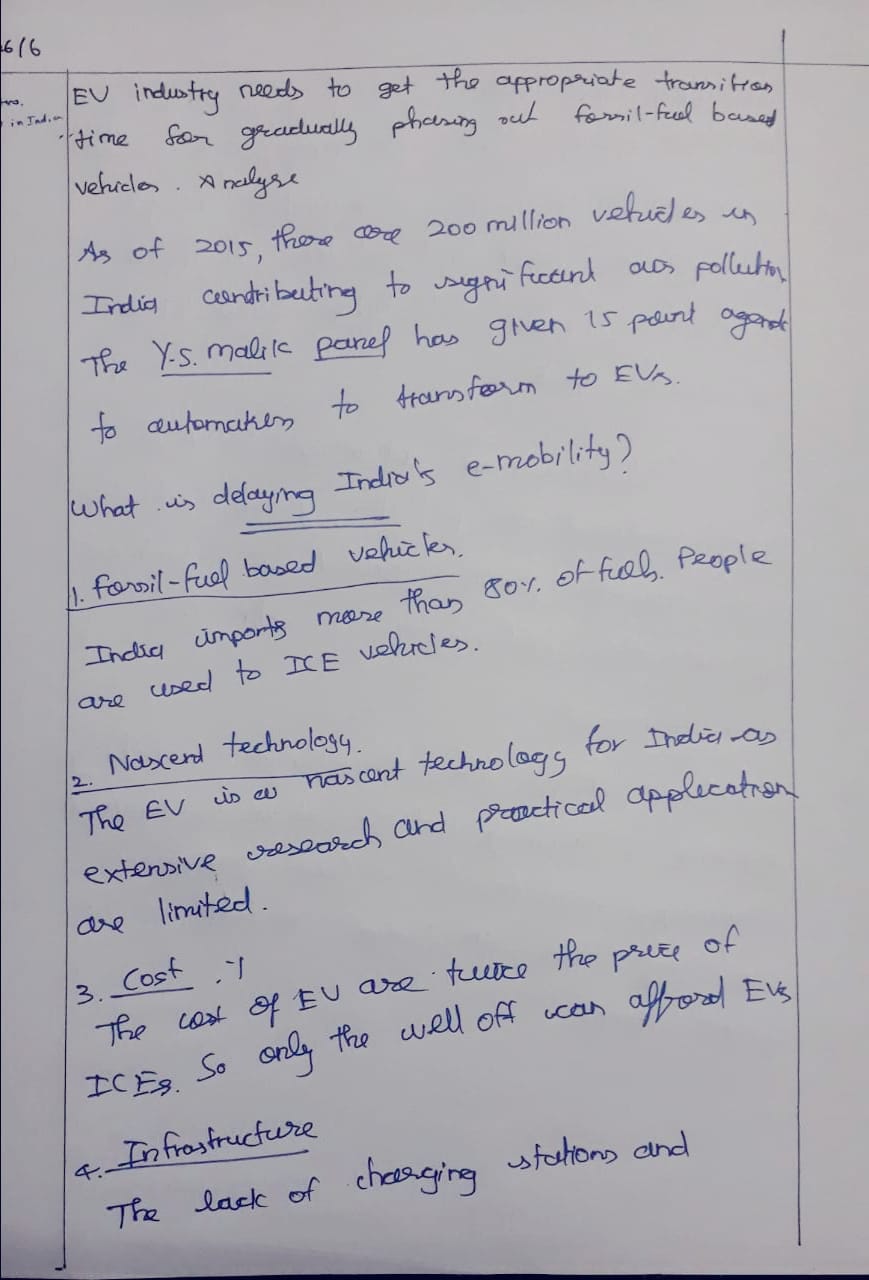 6/6
in India
EV industry needs to get the appropriate transition
time for gradually phasing out fossil-fuel based
vehicles. Analyse
As of 2015, there are 200 million vehicles in
India contributing to significant air pollution
The Y.S. Malik panel has given 15 point agenda
to automakers to transform to EVs.
What is delaying India's e-mobility?
1. Fossil-fuel based vehicles.
India imports more than 80% of fuels. People
are used to ICE vehicles.
2. Nascent technology.
The EV is a nascent technology for India as
extensive research and practical application
are limited.
3. Cost
The cost of EV are twice the price of
ICEs. So only the well off can afford EVs
4. Infrastructure
The lack of charging stations and